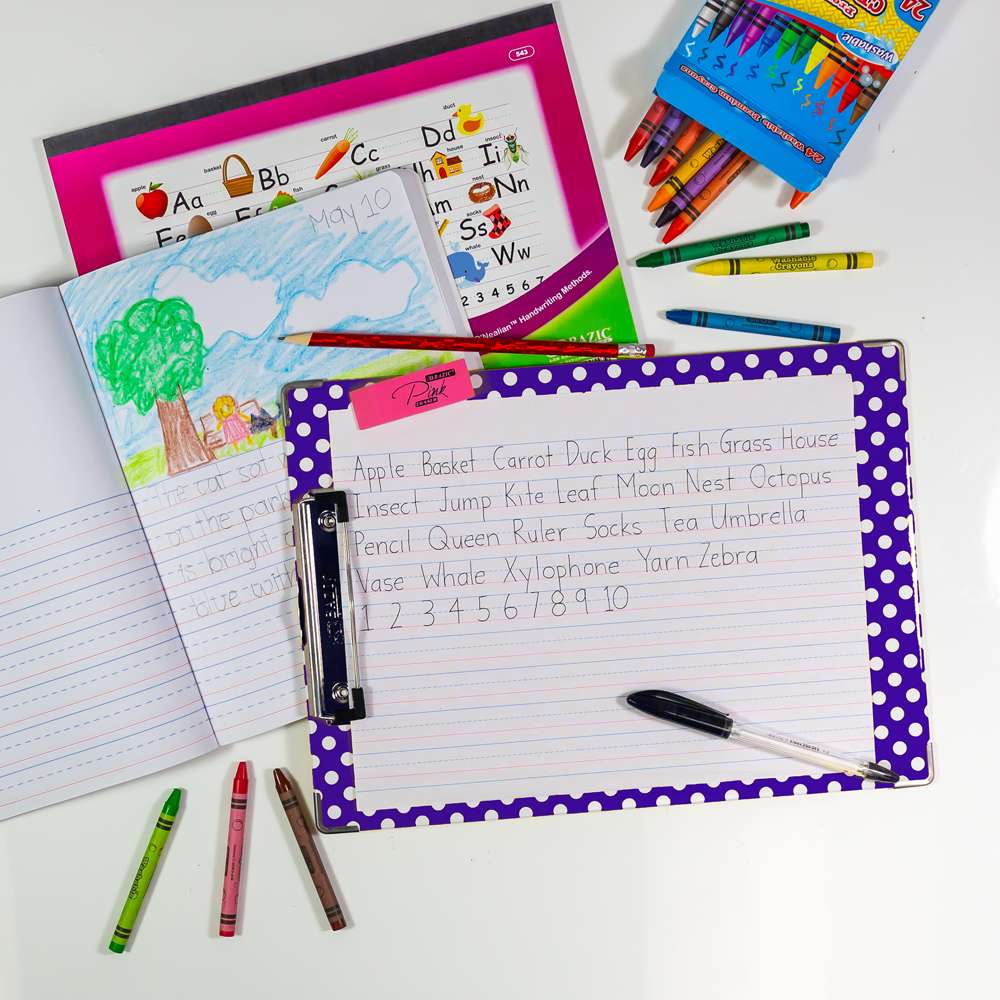 543
apple Aa basket Bb carrot Cc duck Dd
egg fish grass house insect Ii
nest Nn
socks Ss
whale Ww
Handwriting Methods.
24
Washable
24 Washable Premium Crayons
Washable Crayons
May 10
The cat sat
on the park
is bright
blue with
Pink
ERASER
Apple Basket Carrot Duck Egg Fish Grass House
Insect Jump Kite Leaf Moon Nest Octopus
Pencil Queen Ruler Socks Tea Umbrella
Vase Whale Xylophone Yarn Zebra
1 2 3 4 5 6 7 8 9 10